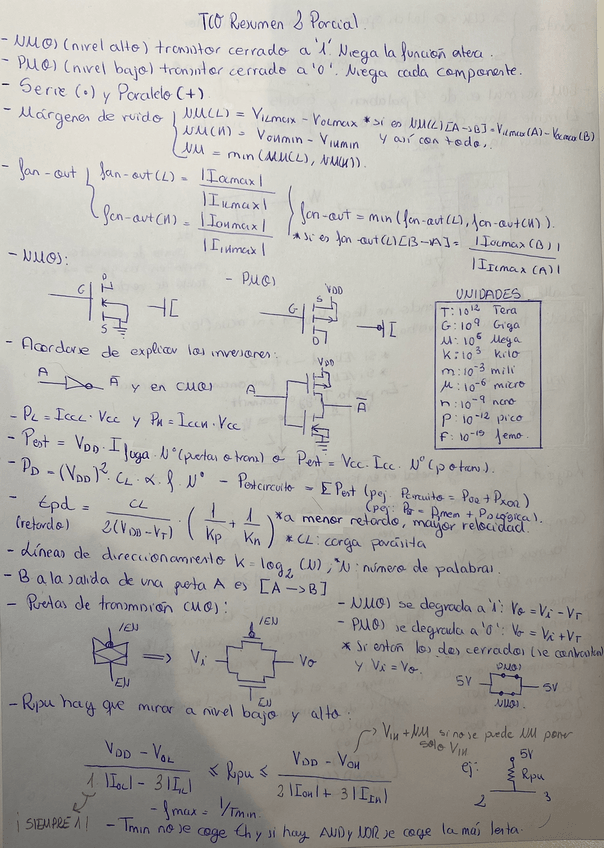 TCO Resumen 2 Parcial.
- NMOS (nivel alto) transistor cerrado a '1'. Niega la función entera.
- PMOS (nivel bajo) transistor cerrado a '0'. Niega cada componente.
- Serie (·) y Paralelo (+)
- Márgenes de ruido { NM(L) = VILmax - VOLmax * si es NM(L)[A->B] = VILmax(A) - VOLmax(B)
NM(H) = VOHmin - VIHmin y así con todo.
NM = min(NM(L), NM(H)).
- fan-out { fan-out(L) = |IOLmax| / |IILmax|
fan-out(H) = |IOHmax| / |IIHmax|
} fan-out = min(fan-out(L), fan-out(H)).
* si es fan-out(L)[B->A] = |IOLmax(B)| / |IILmax(A)|
- NMOS:
G D S
- PMOS
G VDD S D
UNIDADES
T: 10^12 Tera
G: 10^9 Giga
M: 10^6 Mega
K: 10^3 Kilo
m: 10^-3 mili
μ: 10^-6 micro
n: 10^-9 nano
p: 10^-12 pico
F: 10^-15 femo
- Acordarse de explicar los inversores:
A Ā y en CMOS A VDD Ā
- PL = ICCL · VCC y PH = ICCH · VCC
- Pest = VDD · Ifuga · Nº (puertas o trans) o Pest = VCC · ICC · Nº (p o tran).
- PD = (VDD)² · CL · α · f · Nº - Pestcircuito = Σ Pest (pej: Pcircuito = POR + PXOR)
(pej: PB = Pmem + Pológica).
- tpd = CL / 2(VDD - VT) · (1/Kp + 1/Kn) * a menor retardo, mayor velocidad.
(retardo) * CL: carga parásita
- Líneas de direccionamiento K = log2 (N), * N: número de palabras.
- B a la salida de una puerta A es [A -> B]
- Puertas de transmisión CMOS:
/EN EN => Vi /EN EN Vo
- NMOS se degrada a '1': Vo = Vi - VT
- PMOS se degrada a '0': Vo = Vi + VT
* si están los dos cerrados (se contrarrestan)
y Vi = Vo.
5V PMOS NMOS 5V
- Rpu hay que mirar a nivel bajo y alto:
VDD - VOL / 1 |IOL| - 3|IIL| ≤ Rpu ≤ VDD - VOH / 2|IOH| + 3|IIH|
VIH + NM si no se puede NM poner
solo VIH
ej: 5V Rpu 2 3
¡SIEMPRE 1!
- fmax = 1/Tmin.
- Tmin no se coge th y si hay AND y NOR se coge la más lenta.